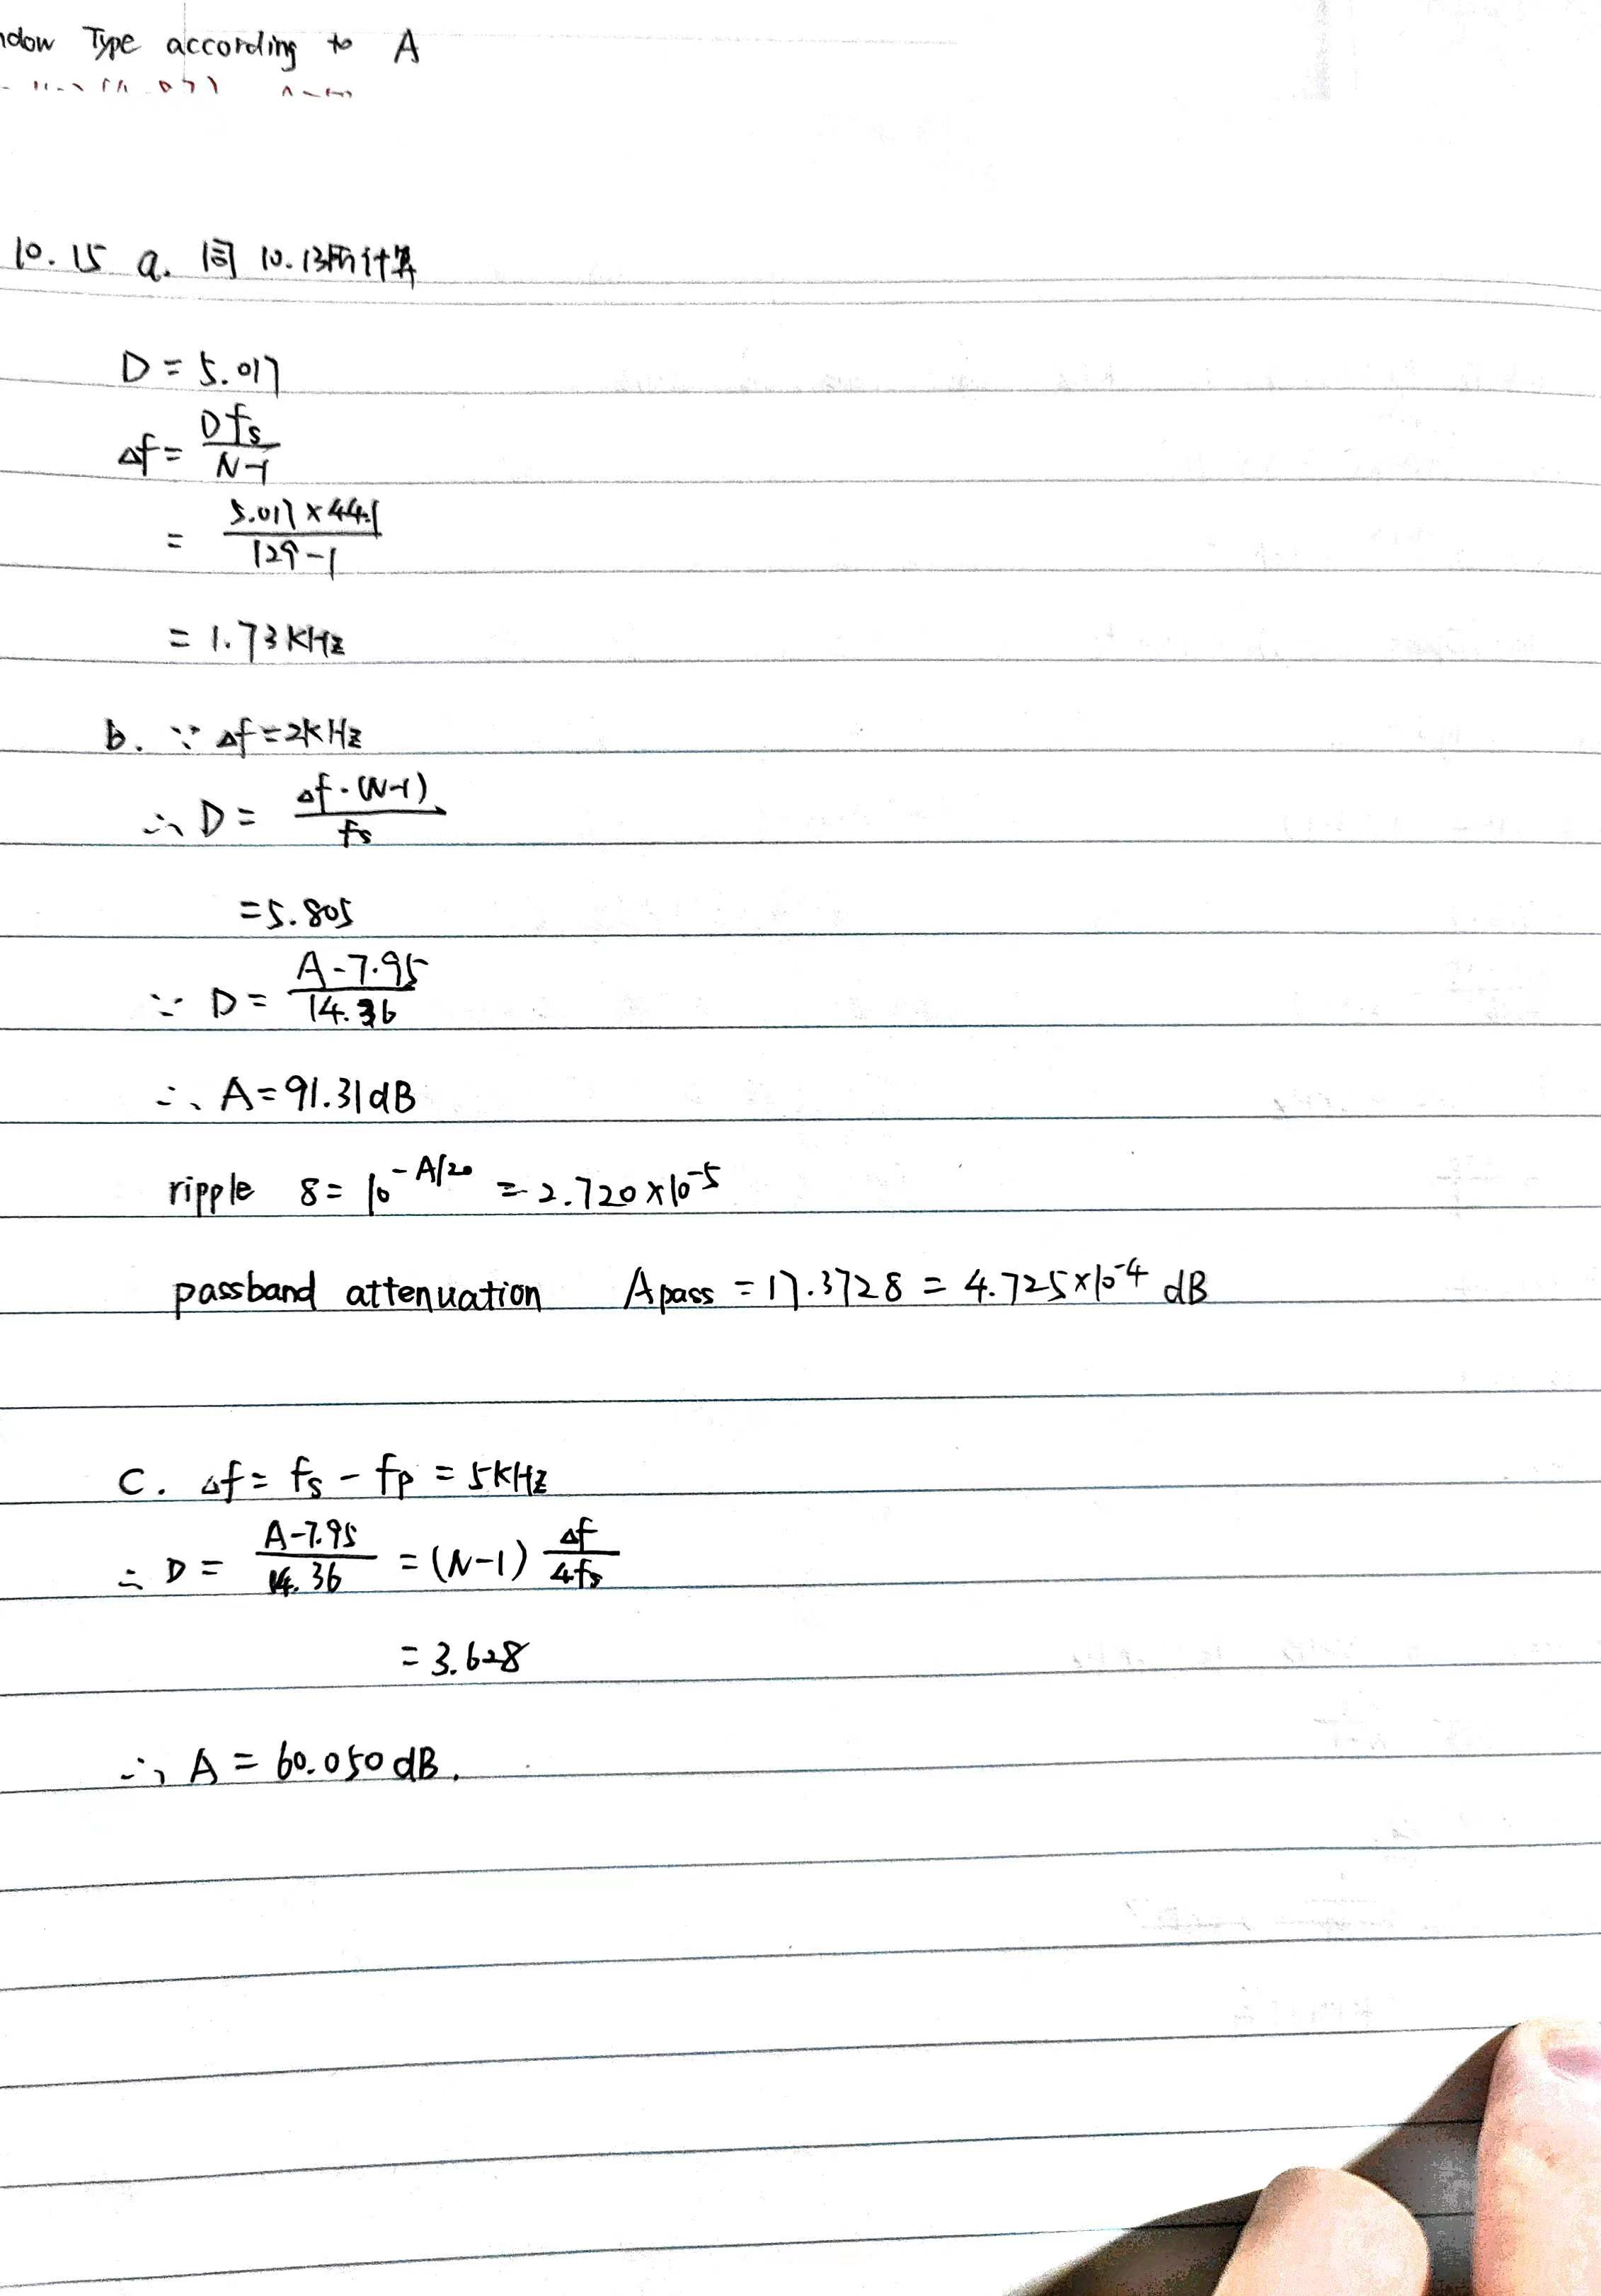 ndow Type according to A
10.15 a. 同10.13所计算
D = 5.017
Δf = Dfs / N-1
= 5.017×44.1 / 129-1
= 1.73 KHz
b. ∵ Δf = 2KHz
∴ D = Δf·(N-1) / fs
= 5.805
∵ D = A-7.95 / 14.36
∴ A = 91.31dB
ripple δ = 10^-A/20 = 2.720×10^-5
passband attenuation Apass = 17.372δ = 4.725×10^-4 dB
C. Δf = fs - fp = 5KHz
∴ D = A-7.95 / 14.36 = (N-1) Δf / 4fs
= 3.628
∴ A = 60.050 dB.